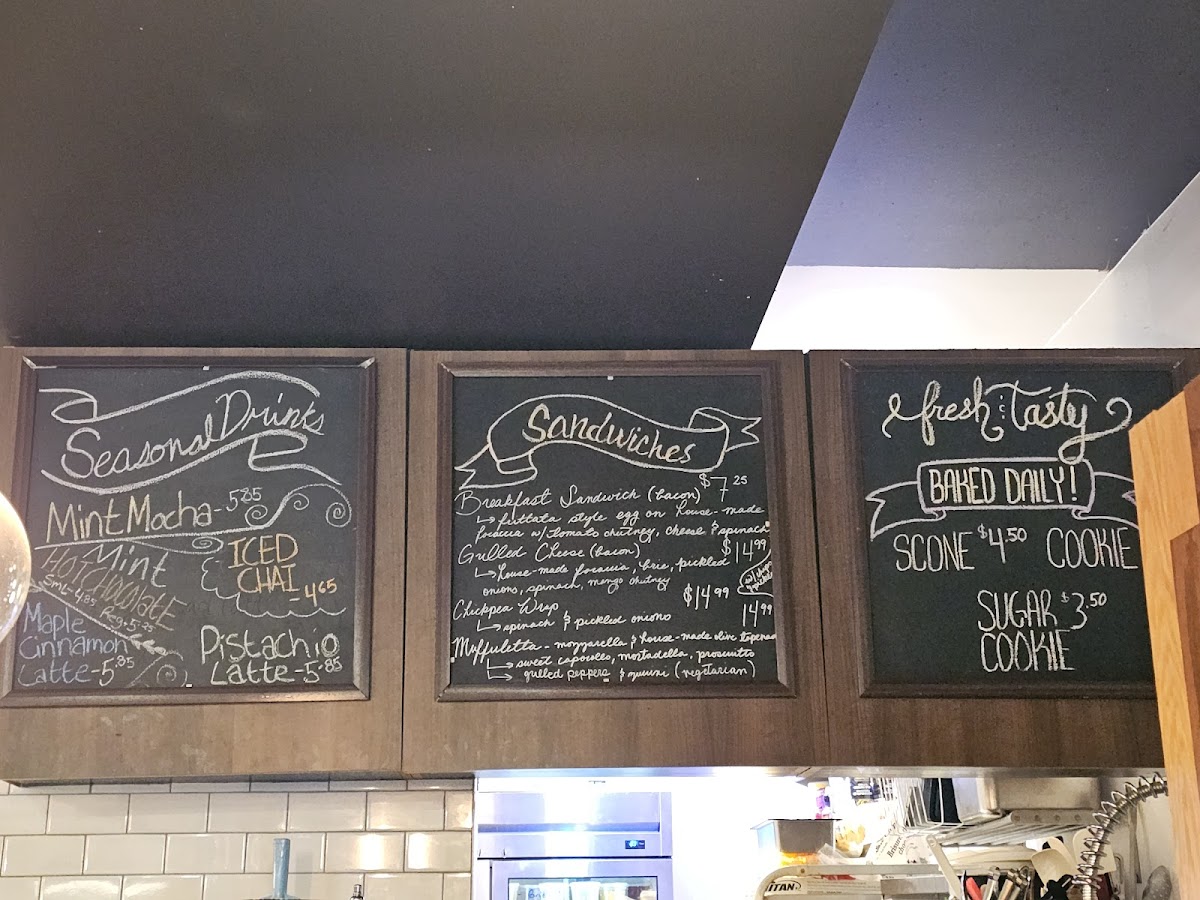 Seasonal Drinks
Mint Mocha - 5.85
Mint
HOT CHOCOLATE
Sml - 4.85 Reg - 5.25
ICED
CHAI - 4.65
Maple
Cinnamon
Latte - 5.85
Pistachio
Latte - 5.85
Sandwiches
Breakfast Sandwich (bacon) $7.25
futtata style egg on house-made
focaccia w/ tomato chutney, cheese & spinach
Grilled Cheese (bacon) $14.99
house-made focaccia, brie, pickled
onions, spinach, mango chutney
Chickpea Wrap $14.99
spinach & pickled onions
14.99
Muffuletta - mozzarella & house-made olive tapenade
sweet capocollo, mortadella, prosciutto
grilled peppers & (vegetarian)
fresh & tasty
BAKED DAILY!
SCONE $4.50 COOKIE
SUGAR $3.50
COOKIE
TITAN